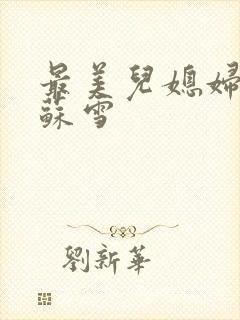 最美兒媳婦
蘇雪
劉新華